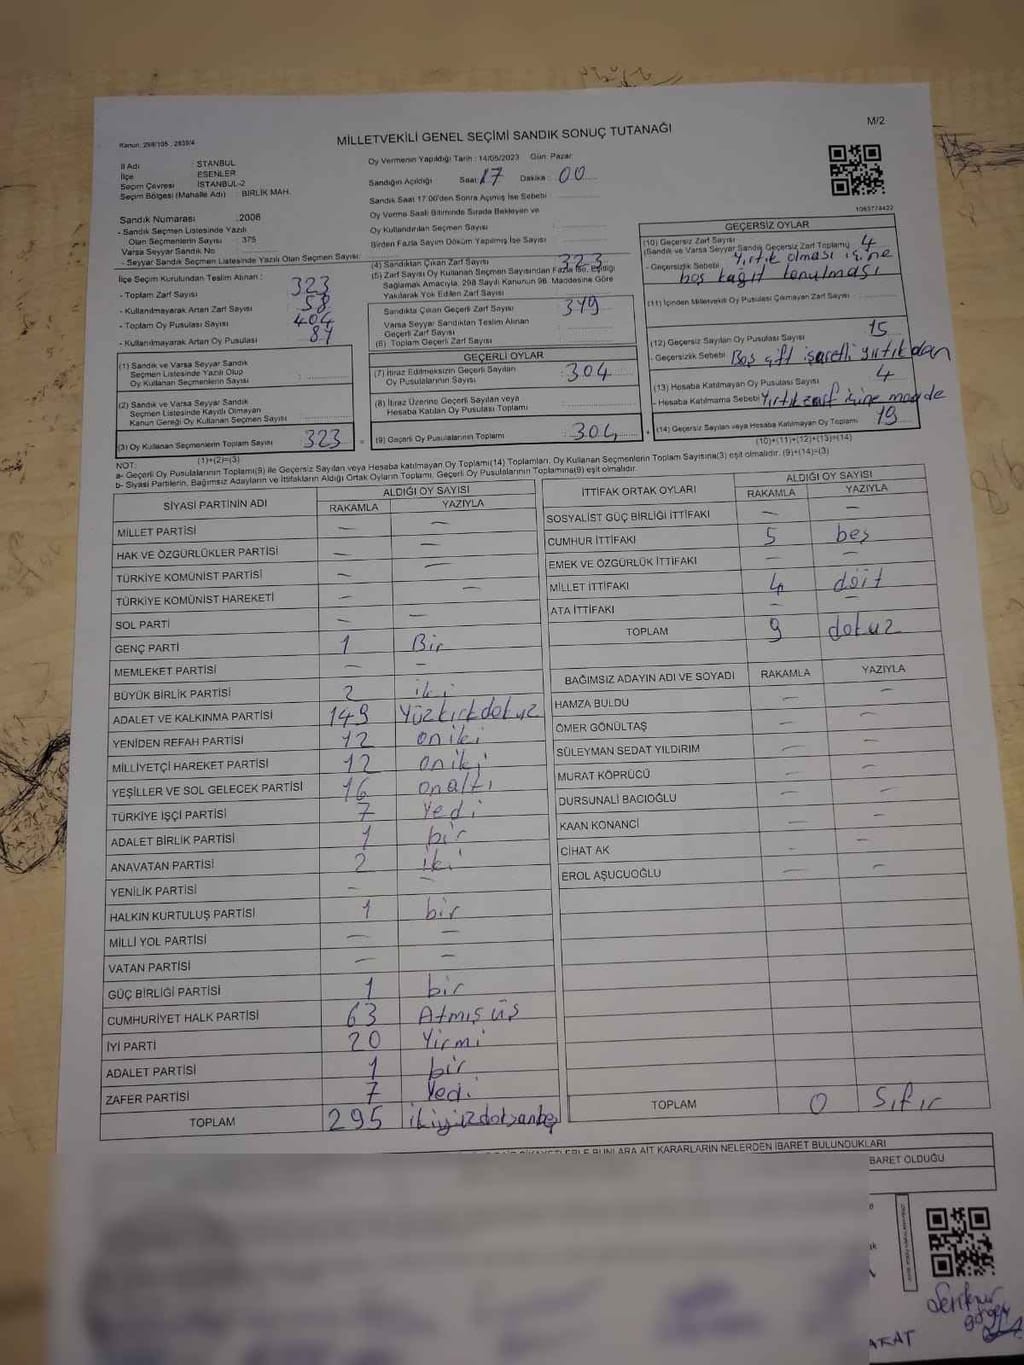 MİLLETVEKİLİ GENEL SEÇİMİ SANDIK SONUÇ TUTANAĞI
M/2
Kanun: 298/105, 2839/4
İl Adı : İSTANBUL
İlçe : ESENLER
Seçim Çevresi : İSTANBUL-2
Seçim Bölgesi (Mahalle Adı) : BİRLİK MAH.
Sandık Numarası : 2006
- Sandık Seçmen Listesinde Yazılı
Olan Seçmenlerin Sayısı : 375
Varsa Seyyar Sandık No :
- Seyyar Sandık Seçmen Listesinde Yazılı Olan Seçmen Sayısı:
Oy Vermenin Yapıldığı Tarih : 14/05/2023 Gün: Pazar
Sandığın Açıldığı Saat: 17 Dakika : 00
Sandık Saat 17:00'den Sonra Açılmış İse Sebebi
Oy Verme Saati Bitiminde Sırada Bekleyen ve
Oy Kullandırılan Seçmen Sayısı :
Birden Fazla Sayım Döküm Yapılmış İse Sayısı :
1063774422
İlçe Seçim Kurulundan Teslim Alınan :
- Toplam Zarf Sayısı 323
- Kullanılmayarak Artan Zarf Sayısı : 58
- Toplam Oy Pusulası Sayısı 404
- Kullanılmayarak Artan Oy Pusulası : 81
(1) Sandık ve Varsa Seyyar Sandık
Seçmen Listesinde Yazılı Olup
Oy Kullanan Seçmenlerin Sayısı :
(2) Sandık ve Varsa Seyyar Sandık
Seçmen Listesinde Kayıtlı Olmayan
Kanun Gereği Oy Kullanan Seçmen Sayısı :
(3) Oy Kullanan Seçmenlerin Toplam Sayısı : 323
(1)+(2)=(3)
(4) Sandıktan Çıkan Zarf Sayısı : 323
(5) Zarf Sayısı Oy Kullanan Seçmen Sayısından Fazla ise, Eşitliği
Sağlamak Amacıyla, 298 Sayılı Kanunun 98. Maddesine Göre
Yakılarak Yok Edilen Zarf Sayısı
Sandıkta Çıkan Geçerli Zarf Sayısı : 319
Varsa Seyyar Sandıktan Teslim Alınan
Geçerli Zarf Sayısı
(6) Toplam Geçerli Zarf Sayısı :
GEÇERLİ OYLAR
(7) İtiraz Edilmeksizin Geçerli Sayılan
Oy Pusulalarının Sayısı : 304
(8) İtiraz Üzerine Geçerli Sayılan veya
Hesaba Katılan Oy Pusulası Toplamı :
(9) Geçerli Oy Pusulalarının Toplamı : 304
GEÇERSİZ OYLAR
(10) Geçersiz Zarf Sayısı
(Sandık ve Varsa Seyyar Sandık Geçersiz Zarf Toplamı) : 4
- Geçersizlik Sebebi : Yırtık olması içine
boş kağıt konulması
(11) İçinden Milletvekili Oy Pusulası Çıkmayan Zarf Sayısı :
(12) Geçersiz Sayılan Oy Pusulası Sayısı 15
- Geçersizlik Sebebi : Boş çift işaretli yırtık olan
(13) Hesaba Katılmayan Oy Pusulası Sayısı 4
- Hesaba Katılmama Sebebi : Yırtık zarf içine madde
(14) Geçersiz Sayılan veya Hesaba Katılmayan Oy Toplamı : 19
(10)+(11)+(12)+(13)=(14)
NOT:
a- Geçerli Oy Pusulalarının Toplamı(9) ile Geçersiz Sayılan veya Hesaba katılmayan Oy Toplamı(14) Toplamları, Oy Kullanan Seçmenlerin Toplam Sayısına(3) eşit olmalıdır. (9)+(14)=(3)
b- Siyasi Partilerin, Bağımsız Adayların ve İttifakların Aldığı Ortak Oyların Toplamı, Geçerli Oy Pusulalarının Toplamına(9) eşit olmalıdır.
SİYASİ PARTİNİN ADI ALDIĞI OY SAYISI
RAKAMLA YAZIYLA
MİLLET PARTİSİ — —
HAK VE ÖZGÜRLÜKLER PARTİSİ — —
TÜRKİYE KOMÜNİST PARTİSİ — —
TÜRKİYE KOMÜNİST HAREKETİ — —
SOL PARTİ — —
GENÇ PARTİ 1 Bir
MEMLEKET PARTİSİ — —
BÜYÜK BİRLİK PARTİSİ 2 iki
ADALET VE KALKINMA PARTİSİ 149 Yüzkırkdokuz
YENİDEN REFAH PARTİSİ 12 oniki
MİLLİYETÇİ HAREKET PARTİSİ 12 oniki
YEŞİLLER VE SOL GELECEK PARTİSİ 16 onaltı
TÜRKİYE İŞÇİ PARTİSİ 7 Yedi
ADALET BİRLİK PARTİSİ 1 bir
ANAVATAN PARTİSİ 2 iki
YENİLİK PARTİSİ — —
HALKIN KURTULUŞ PARTİSİ 1 bir
MİLLİ YOL PARTİSİ — —
VATAN PARTİSİ — —
GÜÇ BİRLİĞİ PARTİSİ 1 bir
CUMHURİYET HALK PARTİSİ 63 Atmış üş
İYİ PARTİ 20 Yirmi
ADALET PARTİSİ 1 bir
ZAFER PARTİSİ 7 Yedi
TOPLAM 295 ikiyüzdoksanbeş
İTTİFAK ORTAK OYLARI ALDIĞI OY SAYISI
RAKAMLA YAZIYLA
SOSYALİST GÜÇ BİRLİĞİ İTTİFAKI — —
CUMHUR İTTİFAKI 5 beş
EMEK VE ÖZGÜRLÜK İTTİFAKI — —
MİLLET İTTİFAKI 4 dört
ATA İTTİFAKI — —
TOPLAM 9 dokuz
BAĞIMSIZ ADAYIN ADI VE SOYADI RAKAMLA YAZIYLA
HAMZA BULDU — —
ÖMER GÖNÜLTAŞ — —
SÜLEYMAN SEDAT YILDIRIM — —
MURAT KÖPRÜCÜ — —
DURSUNALİ BACIOĞLU — —
KAAN KONANCİ — —
CİHAT AK — —
EROL AŞUCUOĞLU — —
TOPLAM 0 Sıfır
BUNLARA AİT KARARLARIN NELERDEN İBARET BULUNDUKLARI
BARET OLDUĞU